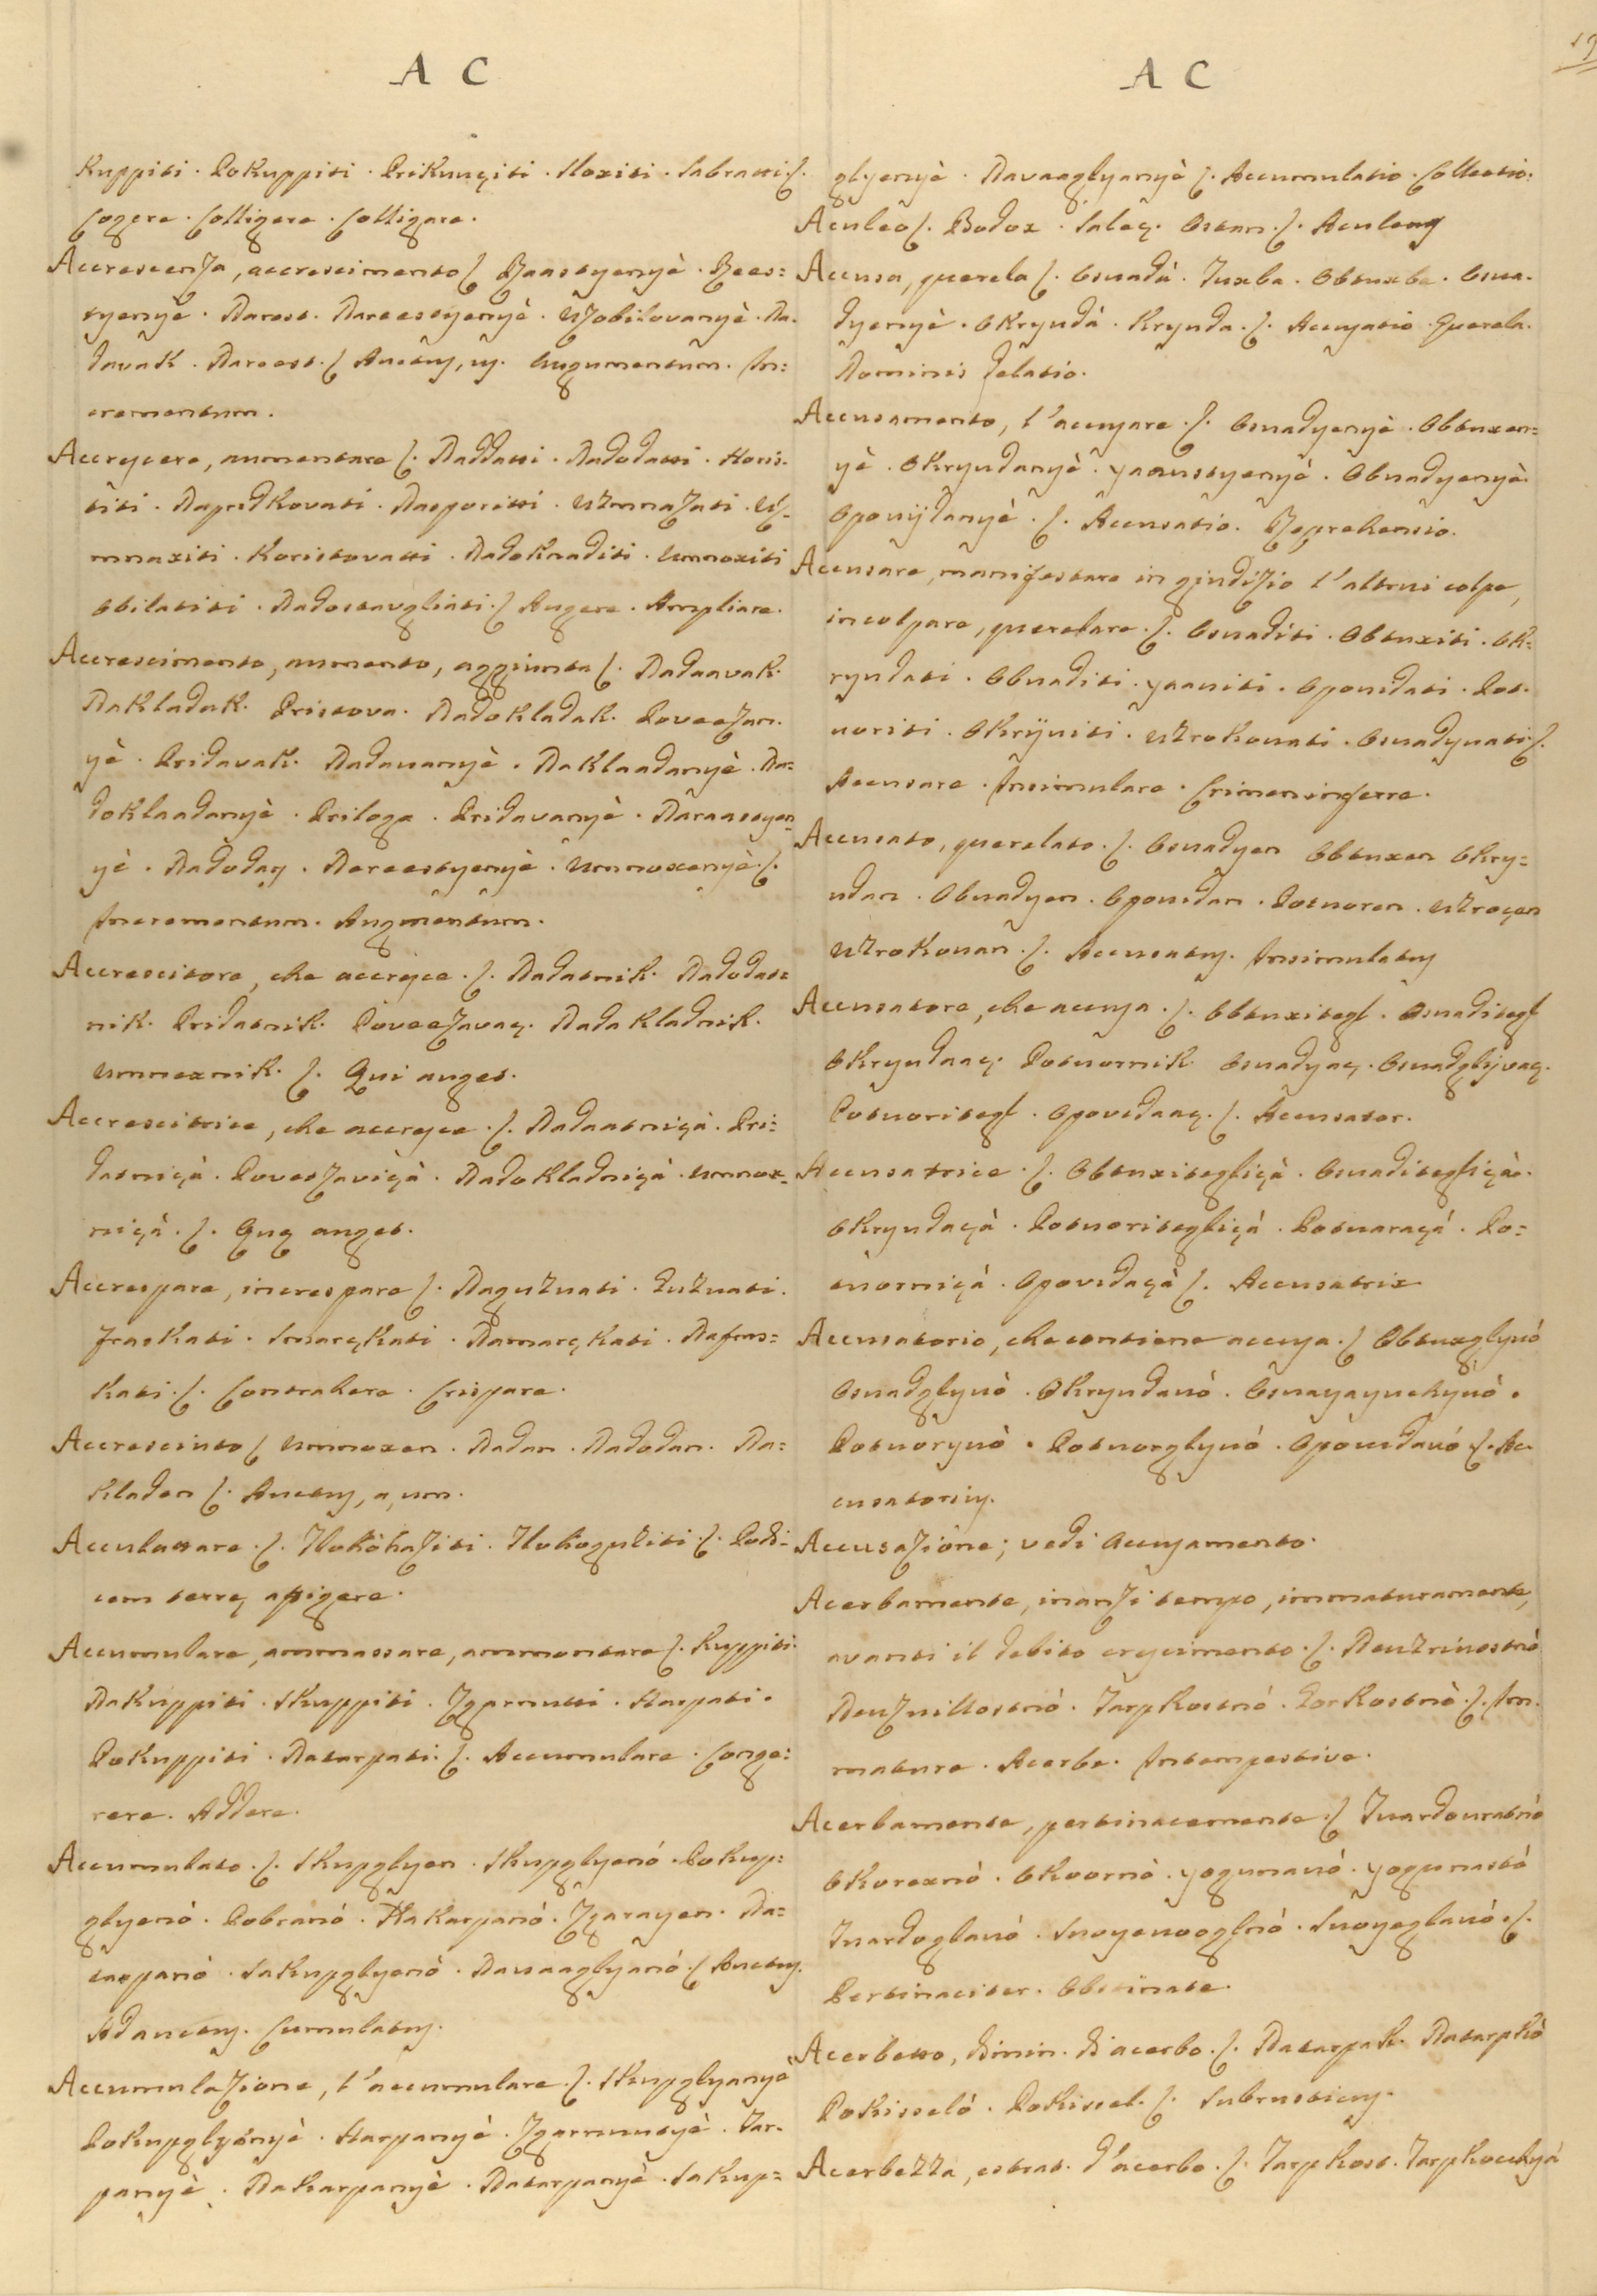 A C
Kuppiti · Pokuppiti · Prikunçiti · Sloxiti · Sabratti ſ.
Cogere · Colligere · Colligare ·
Accrescenza, accrescimento ſ Raastyenyè · Rees=
tyenye · Narost · Nareestyenyè · Uzobilovanyè · Na=
davak · Nareest · ſ Auctus, us. Augumentum. In=
crementum.
Accrescere, aumentare ſ. Naddatti · Nadodatti · Koris=
titi · Napridkovati · Nasporitti · Uzmnazati · Uz=
mnaxiti · Koristovatti · Nadoknaditi · Umnoxiti
Obilatiti · Nadostavgliati · ſ Augere · Ampliare ·
Accrescimento, aumento, aggiunta ſ. Nadaavak.
Nakladak. Pristova. Nadokladak. Poveezan=
yè · Pridavak. Nadavanyè · Naklaadanyè · Na=
doklaadanyè · Priloga · Pridavanyè · Naraastyen=
yè · Nadoday · Nareestyenyè · Umnoxenyè · ſ.
Incrementum. Augmentum.
Accrescitore, che accresce · ſ. Nadatnik. Nadodat=
nik. Pridatnik. Poveezavaç. Nadakladnik.
Umnoxnik. ſ. Qui auget.
Accrescitrice, che accresce · ſ. Nadaatniçà. Pri=
datniçà · Poveezaviçà · Nadokladniçà · Umnox=
niçà · ſ. Quę auget.
Accrespare, increspare ſ. Naguzvati · Guzvati.
Fraskati · Smarçkati · Namarçkati · Nafras=
kati · ſ. Contrahere · Crispare.
Accresciuto ſ Umnoxen · Nadan · Nadodan · Na=
kladen ſ. Auctus, a, um.
Acculattare · ſ. Tlokòhaziti · Tlokoguziti · ſ. Podi=
cem terrę affigere ·
Accumulare, ammassare, ammontare ſ. Kuppiti.
Nakuppiti · Skuppiti · Zgarnutti · Starpati ·
Pokuppiti · Natarpati. ſ. Accumulare · Conge=
rere. Addere.
Accumulato · ſ. Skupglyen · Skupglyenó · Pokup=
glyenó · Pobranó · Nakarpanó · Zgarayen · Na=
tarpanó · Sakupglyenó · Navaaglyanó · ſ Auctus.
Adauctus. Cumulatus.
Accumulazione, l'accumulare · ſ. Skupglyanyè
Pokupglyenyè · Starpanyè · Zgarnutyè · Tar=
panyè · Nakarpanyè · Natarpanyè · Sakup=
A C
glyenyè · Navaaglyanyè ſ. Accumulatio · Collectio.
Aculeo ſ. Bodox · Salaç. Ostan · ſ. Aculeus
Accusa, querela ſ. Osuadà · Tuxba · Obtuxba · Osua=
dyenyè · Okryudà · Kryuda · ſ. Accusatio · Querela.
Nominis delatio.
Accusamento, l'accusare · ſ. Osuadyenyè · Obtuxen=
yè · Okryudanyè · · Obuadyenyè.
· ſ. Accusatio. Reprehensio.
Accusare, manifestare in giudizio l'altrui colpe,
incolpare, querelare · ſ. Osuaditi · Obtuxiti · Ok=
ryudati · Obuaditi · · Opovidati · Pot=
uoriti · Okriviti · Uzrokovati · Osuadyvati · ſ.
Accusare · Insimulare · Crimen inferre.
Accusato, querelato · ſ. Osuadyen Obtuxen Okry=
udan · Obuadyen · Opovidan · Potuoren · Uzroçen
Uzrokovan · ſ. Accusatus. Insimulatus
Accusatore, che accusa · ſ. Obtuxitegl · Osuaditegl
Okryudaaç. Potuornik Osuadyaç · Osuadglyvaç.
Potuoritegl · Opovidaaç · ſ. Accusator.
Accusatrice · ſ. Obtuxitegliçà · Osuaditegliçà.
Okryudaçà · Potuoritegliçà · Potuaraçà · Po=
tuorniçà · Opovidaçà ſ. Accusatrix
Accusatorio, che contiene accusa · ſ Obtuxglyvó
Osuadglyvò · Okryudavó · ·
Potuoryvò · Potuorglyvó · Opovidavó · ſ. Ac=
cusatorius.
Accusazione; vedi Accusamento.
Acerbamente, inanzi tempo, immaturamente,
avanti il debito crescimento · ſ. Neuzrivostnò
· Tarpkostnó · Gorkostnò · ſ. Im=
mature · Acerbe · Intempestive.
Acerbamente, pertinacemente · ſ Tuardouratnò
Okorexnó · Okoornò · yogunavó · yogunastó
Tuardoglavó · Suoyevooglnó · Suoyeglavó · ſ.
Pertinaciter. Obstinate.
Acerbetto, dimin. di acerbo · ſ. Natarpak. Natarpkó
Pokisselò · Pokissel · ſ. Subrusticus.
Acerbezza, estrat. d'acerbo · ſ. Tarpkost. Tarpkochyà